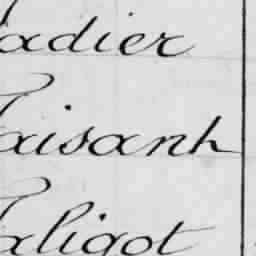 adier
aisant
aligot